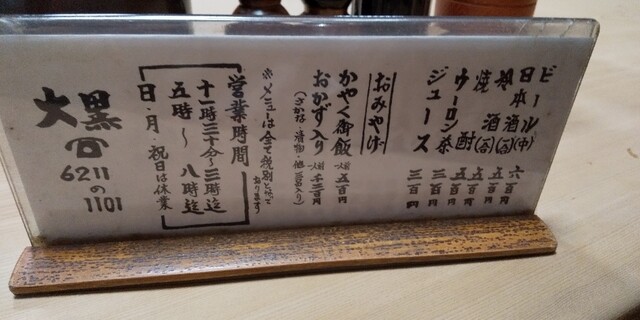 ビール(中) 六百円
日本酒(合) 五百円
冷酒(合) 五百円
焼酎 五百円
ウーロン茶 三百円
ジュース 三百円
おみやげ
かやく御飯 一人前 五百円
おかず入り 一人前 千二百円
(さかな・漬物・他 入り)
※メニューは全て税別となって
おります
営業時間
十一時三十分〜三時迄
五時〜八時迄
日・月・祝日は休業
大黒
☎
6211
の
1101